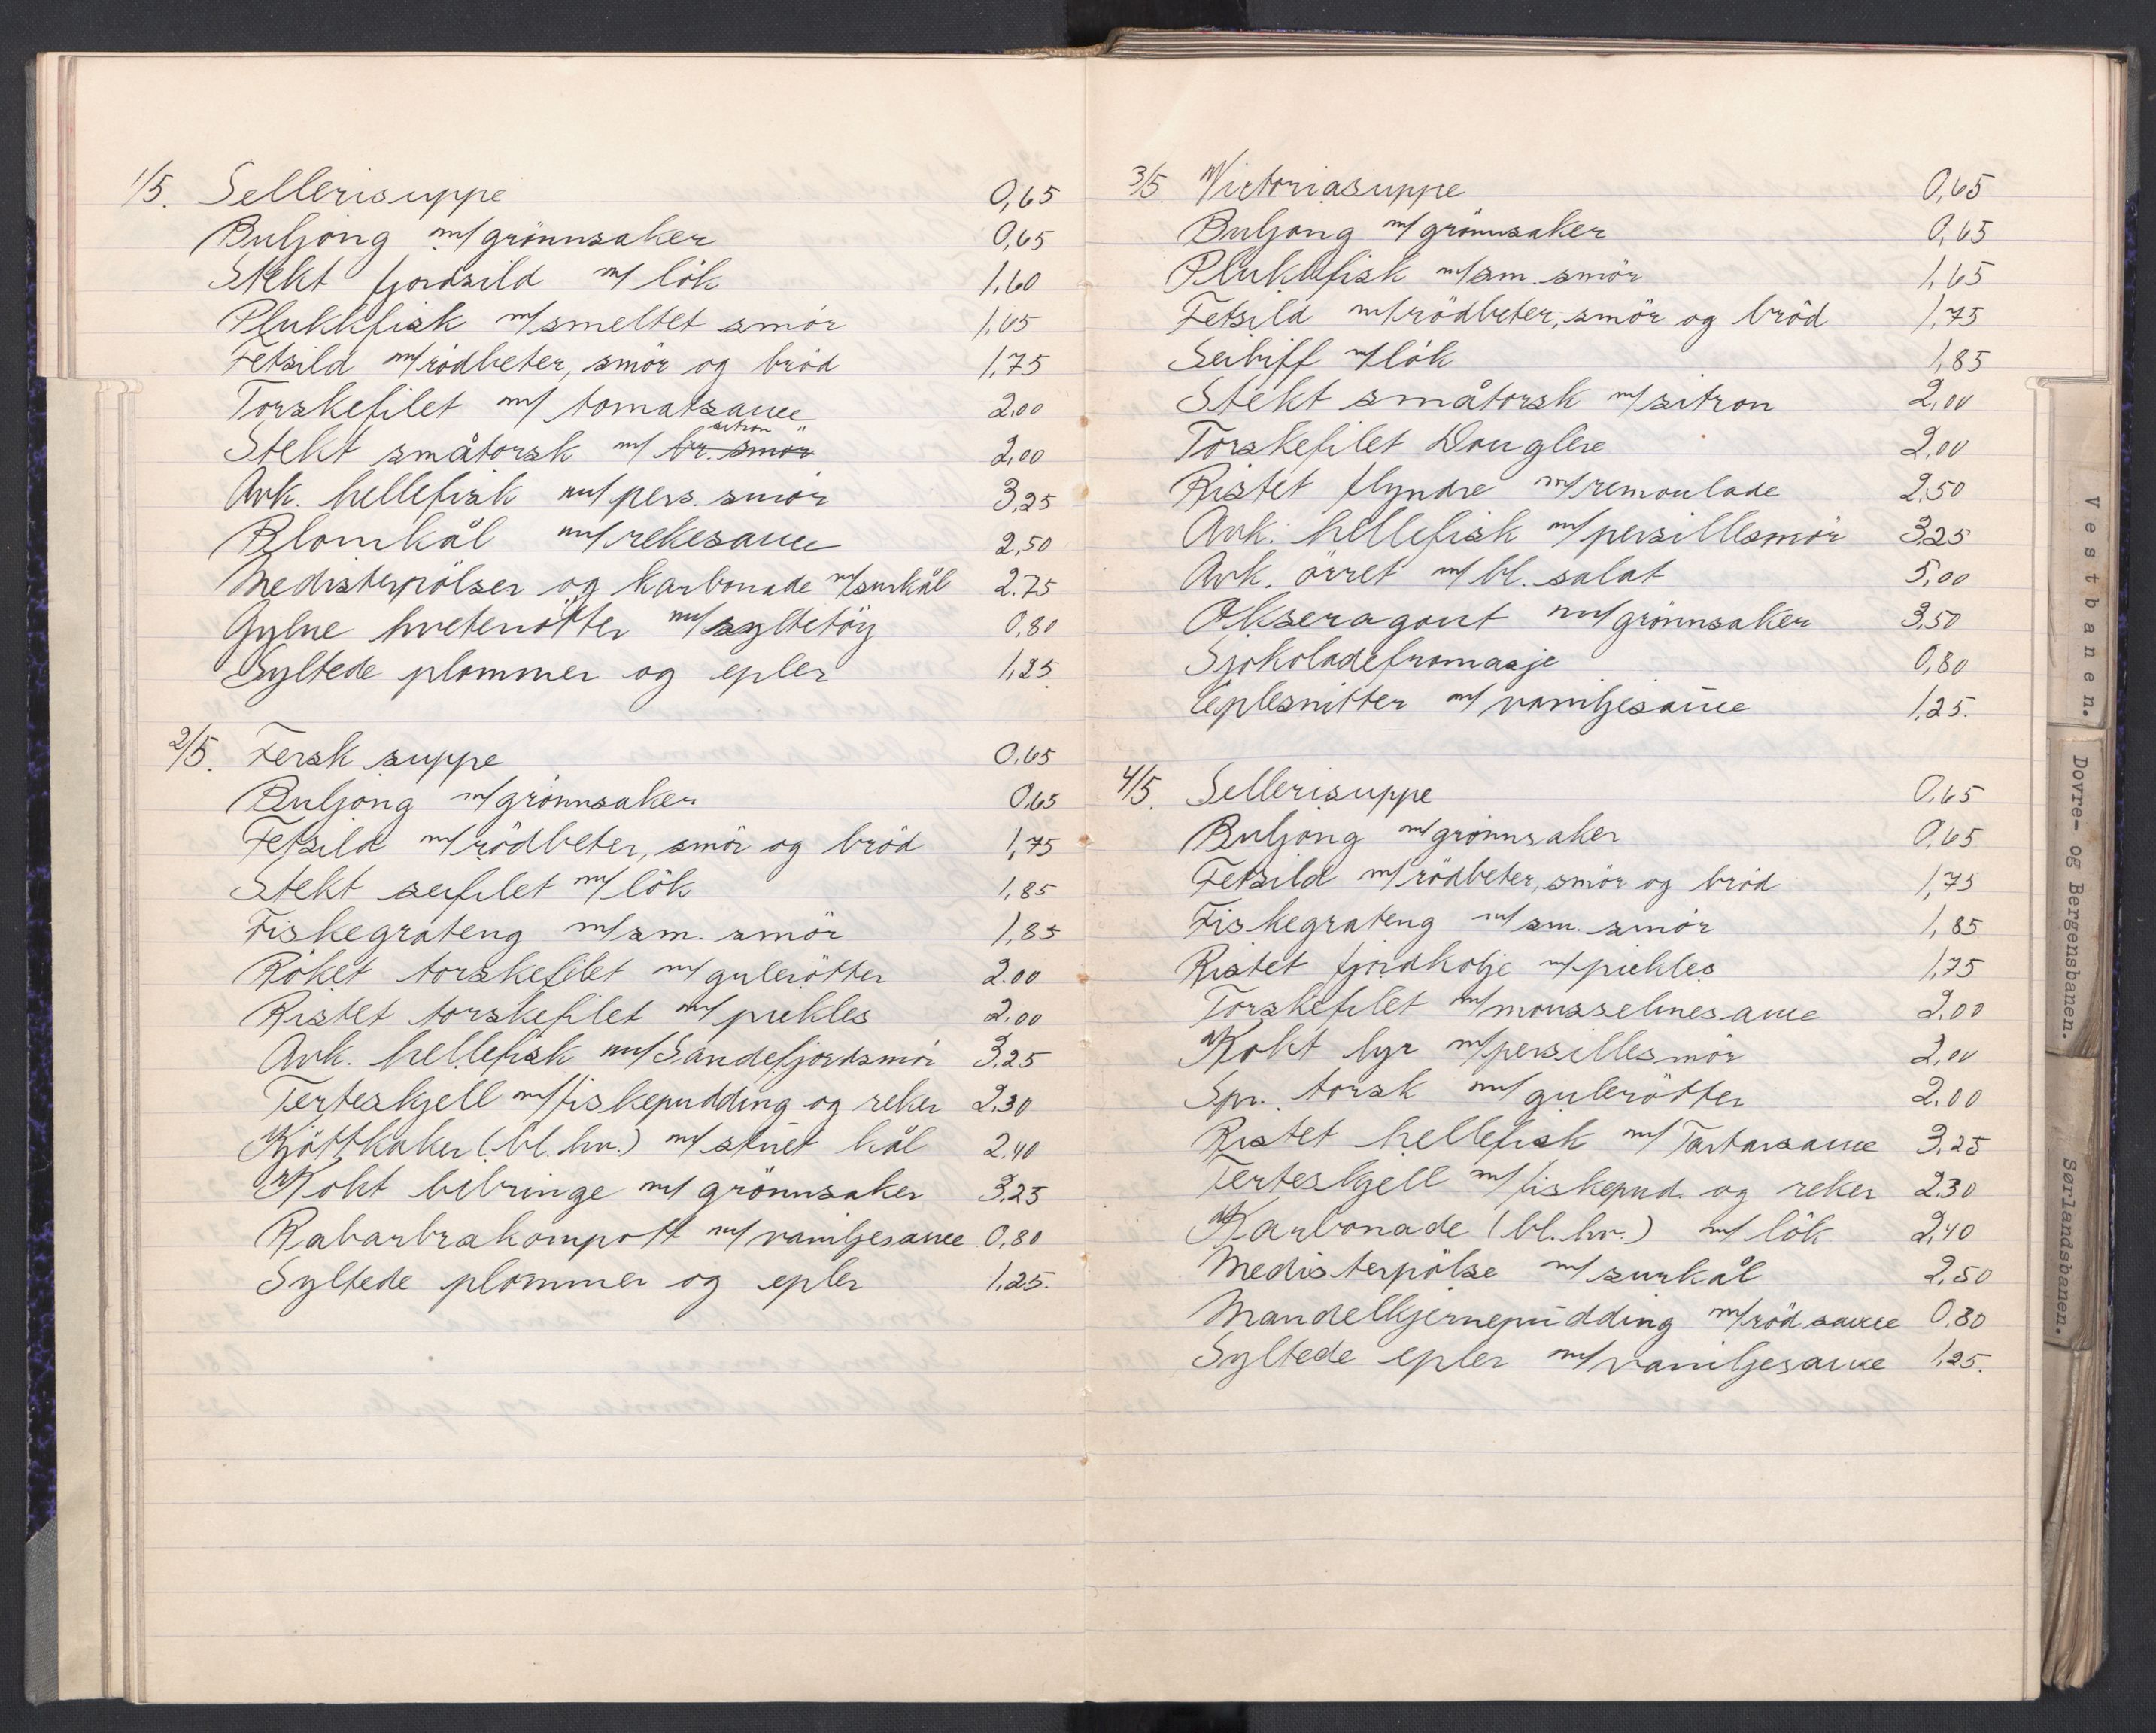 1/5. Sellerisuppe 0,65
Buljong m/ grönnsaker 0,65
Stekt fjordsild m/ lök 1,60
Plukkfisk m/ smeltet smör 1,65
Fetsild m/ rödbeter, smör og bröd 1,75
Torskefilet m/ tomatsauce 2,00
sitron
Stekt småtorsk m/ br. smör 2,00
Avk. hellefisk m/ pers. smör 3,25
Blomkål m/ rekesauce 2,50
Medisterpölser og karbonade m/ surkål 2.75
Gylne hvetenötter m/ syltetöy 0,80
Syltede plommer og epler 1,25
2/5. Fersk suppe 0.65
Buljong m/ grönnsaker 0,65
Fetsild m/ rödbeter, smör og bröd 1,75
Stekt seifilet m/ lök 1,85
Fiskegrateng m/ sm. smör 1,85
Röket torskefilet m/ gulerötter 2.00
Ristet torskefilet m/ pickles 2.00
Avk. hellefisk m/ Sandefjordsmör 3,25
Terteskjell m/ fiskepudding og reker 2,30
Kjöttkaker (bl. hv.) m/ stuet kål 2.40
Kokt bibringe m/ grönnsaker 3,25
Rabarbrakompott m/ vaniljesauce 0,80
Syltede plommer og epler 1,25.
3/5. Victoriasuppe 0,65
Buljong m/ grönnsaker 0,65
Plukkfisk m/ sm. smör 1,65
Fetsild m/ rödbeter, smör og bröd 1,75
Seibiff m/ lök 1,85
Stekt småtorsk m/ sitron 2,00
Torskefilet Douglere 2,00
Ristet flyndre m/ remoulade 2,50
Avk. hellefisk m/ persillesmör 3,25
Avk. örret m/ bl. salat 5,00
Okseragout m/ grönnsaker 3,50
Sjokoladefromasje 0,80
Eplesnitter m/ vaniljesauce 1,25.
4/5. Sellerisuppe 0,65
Buljong m/ grönnsaker 0,65
Fetsild m/ rödbeter, smör og bröd 1,75
Fiskegrateng m/ sm. smör 1,85
Ristet fjordkolje m/ pickles 1,75
Torskefilet m/ mousselinesauce 2.00
Kokt lyr m/ persillesmör 2,00
Spr. torsk m/ gulerötter 2.00
Ristet hellefisk m/ Tartarsauce 3,25
Terteskjell m/ fiskepud. og reker 2,30
Karbonade (bl. hv.) m/ lök 2,40
Medisterpölse m/ surkål 2,50
Mandelkjernepudding m/ röd sauce 0,80
Syltede epler m/ vaniljesauce 1,25.
Vestbanen.
Dovre- og Bergensbanen.
Sørlandsbanen.